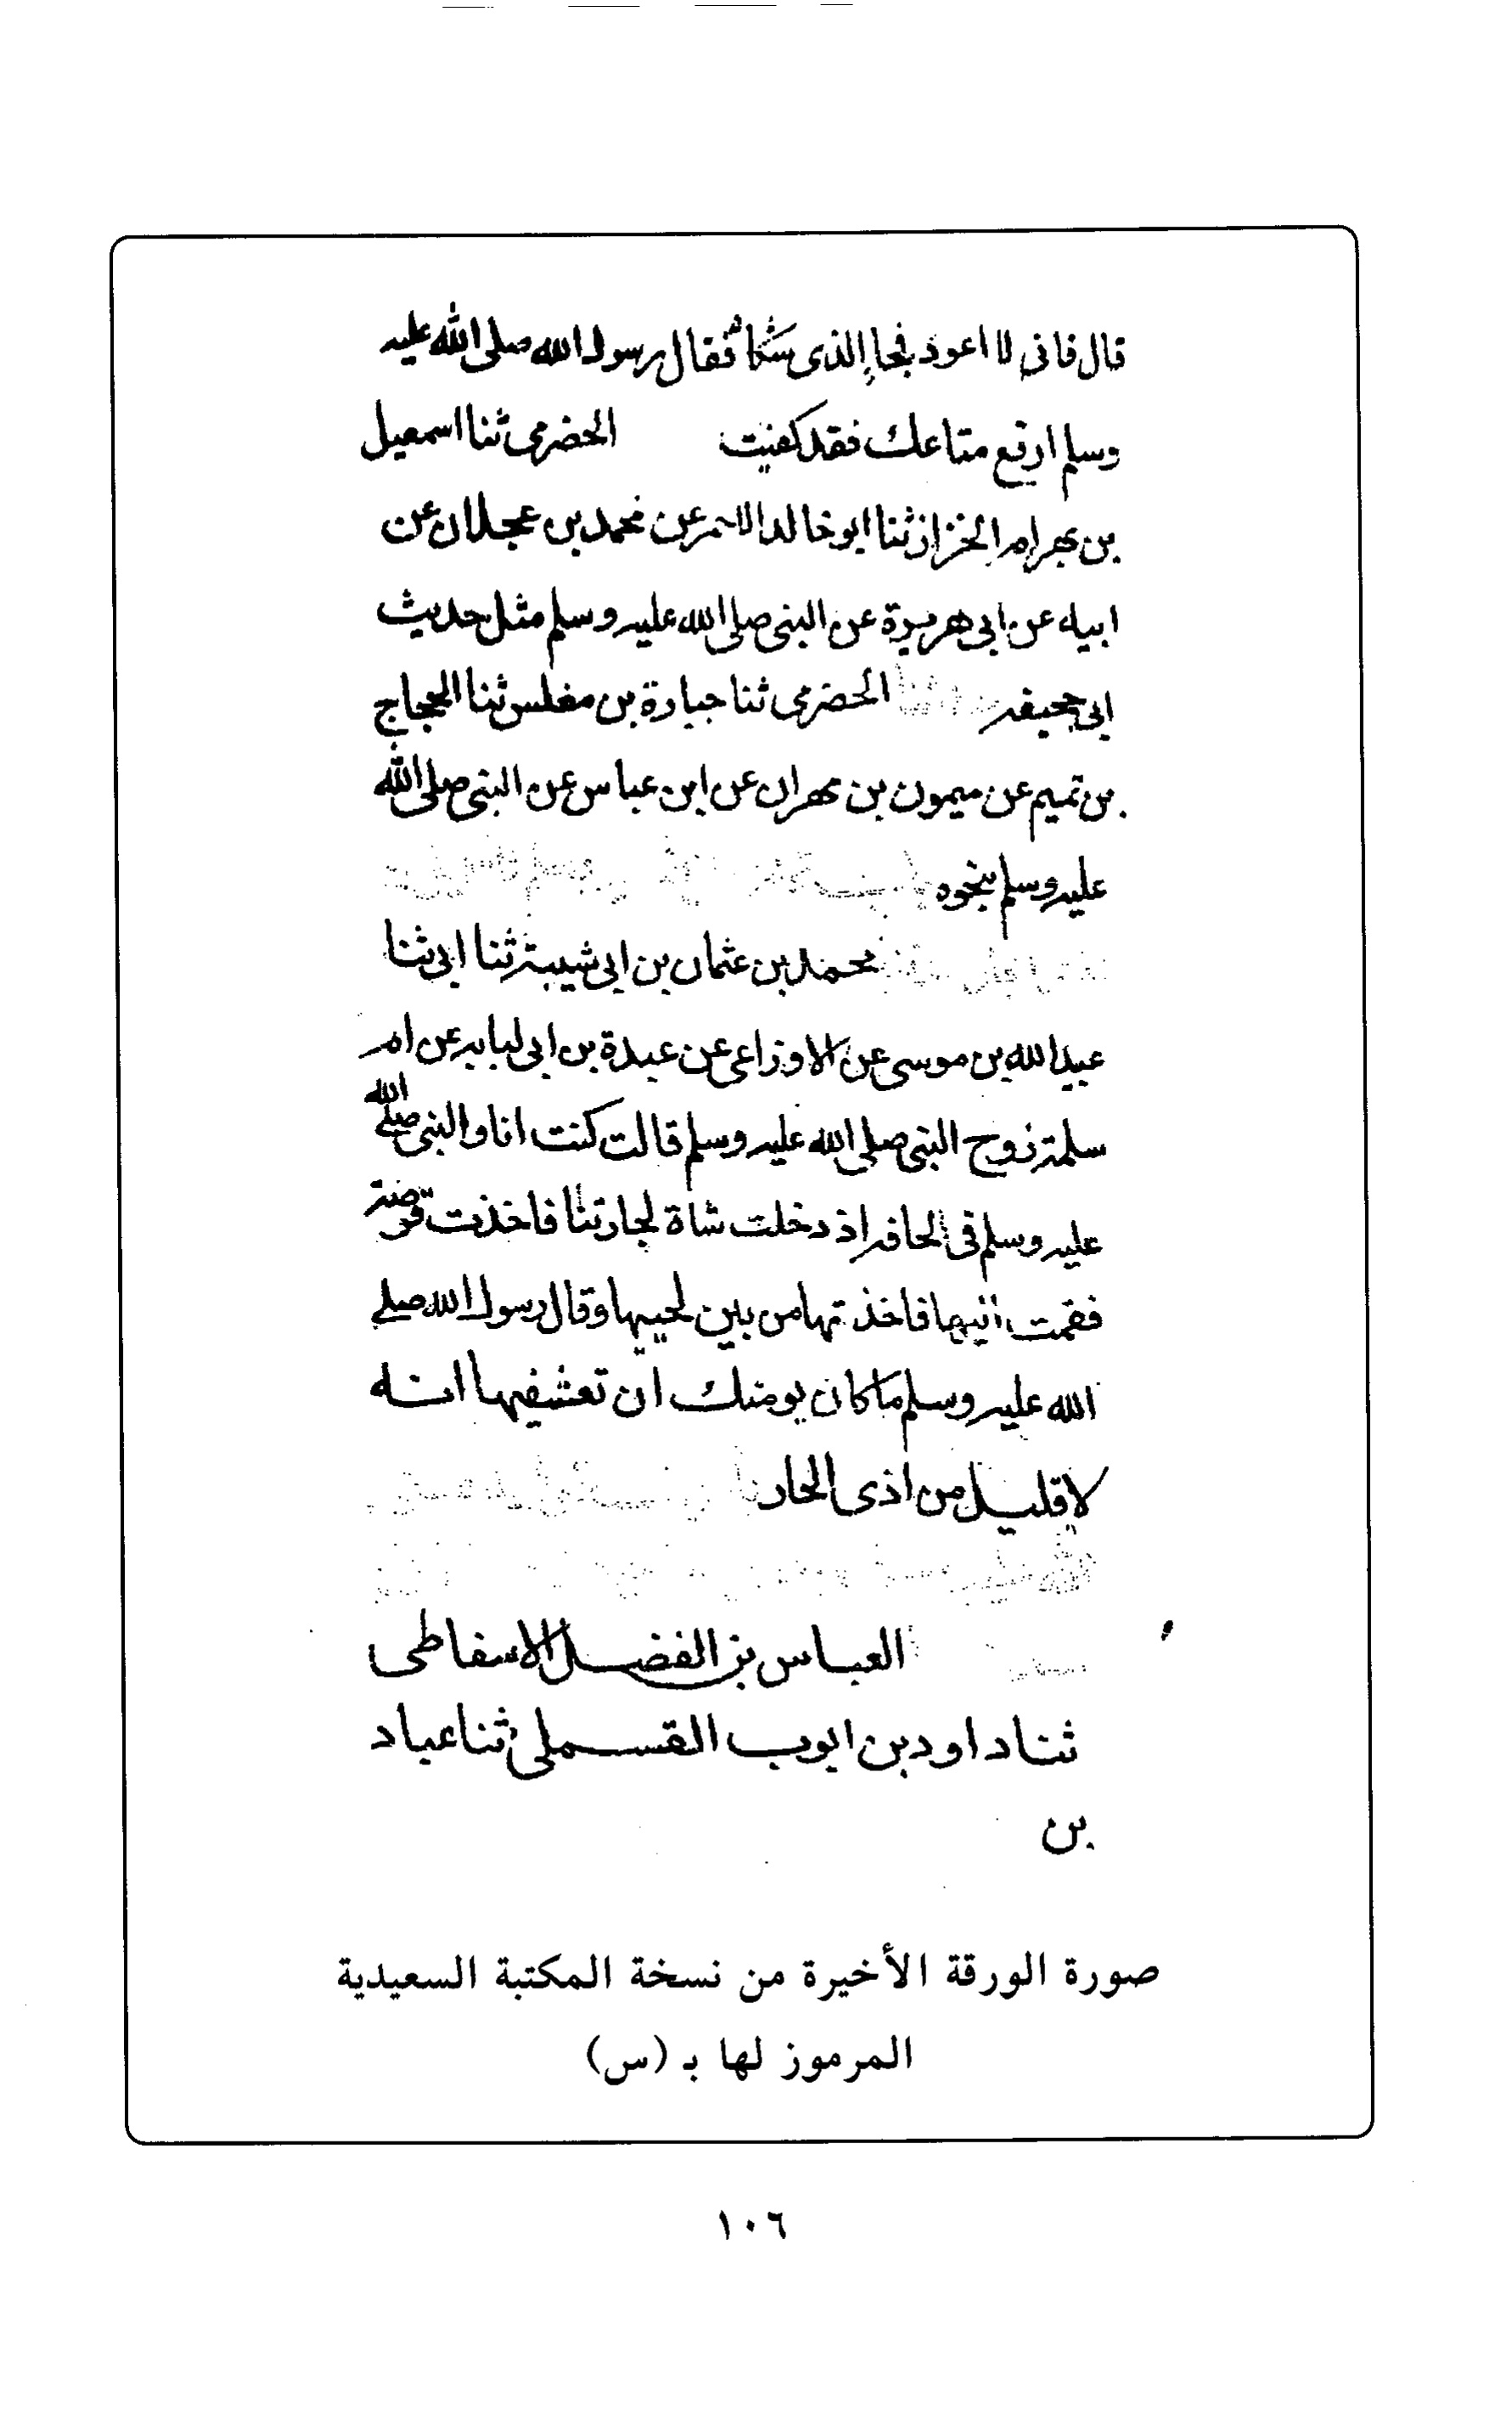 قال فانى لا اعود فجا الذى شكا فقال رسول الله صلى الله عليه
وسلم ارفع متاعك فقد كفيت الحضرمى ثنا اسمعيل
بن بهرام الخزاز ثنا ابو خالد الاحمر عن محمد بن عجلان عن
ابيه عن ابى هريرة عن النبى صلى الله عليه وسلم مثل حديث
ابى جحيفه الحضرمى ثنا جبارة بن مغلس ثنا الحجاج
بن تميم عن ميمون بن مهران عن ابن عباس عن النبى صلى الله
عليه وسلم بنحوه
محمد بن عثمان بن ابى شيبة ثنا ابى ثنا
عبيد الله بن موسى عن الاوزاعى عن عبدة بن ابى لبابه عن ام
سلمة زوج النبى صلى الله عليه وسلم قالت كنت انا والنبى صلى الله
عليه وسلم فى الحافه اذ دخلت شاة لجارتنا فاخذت قرصة
فقمت اليها فاخذتها من بين لحييها وقال رسول الله صلى
الله عليه وسلم ما كان يومنك ان تعشفيها انه
لا قليل من اذى الجار
العباس بن الفضل الاسفاطى
ثنا داود بن ايوب القسملى ثنا عباد
بن
صورة الورقة الأخيرة من نسخة المكتبة السعيدية
المرموز لها بـ (س)
١٠٦